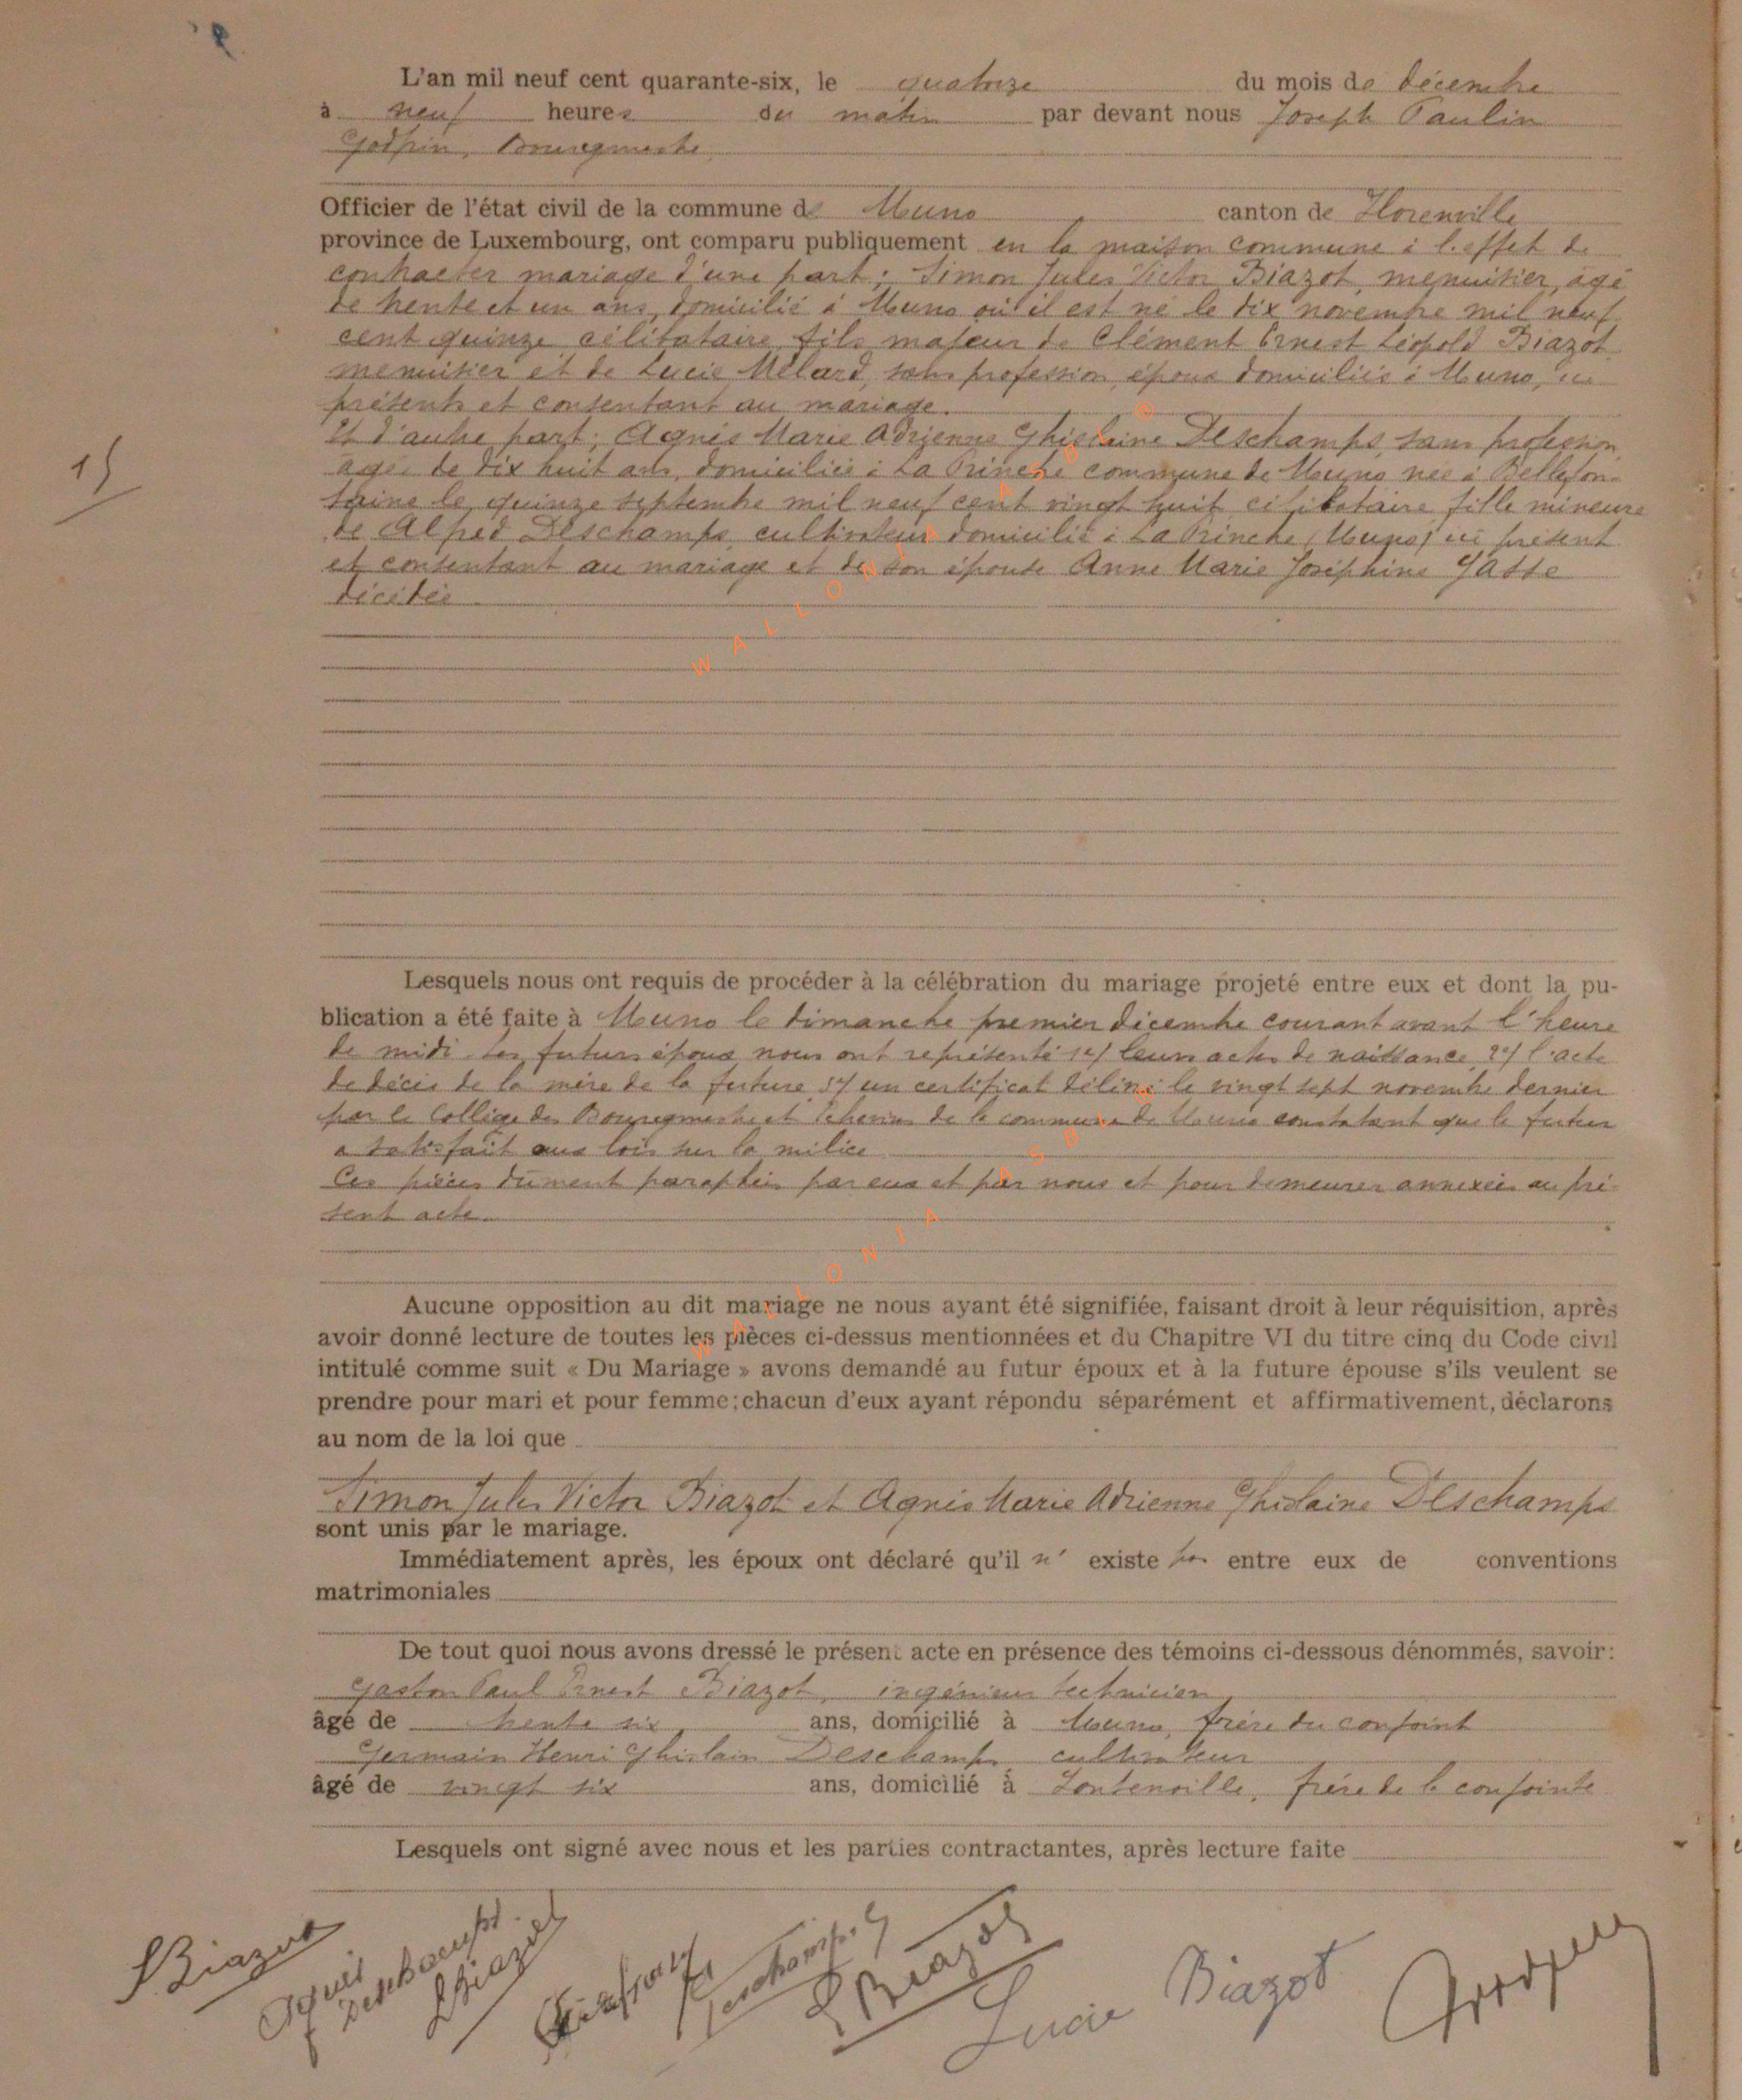 L'an mil neuf cent quarante-six, le quatorze du mois de décembre
à neuf heures du matin par devant nous Joseph Paulin
Godfrin, Bourgmestre
Officier de l'état civil de la commune de Muno canton de Florenville
province de Luxembourg, ont comparu publiquement en la maison commune à l'effet de
contracter mariage d'une part; Simon Jules Victor Biazot, menuisier, âgé
de trente et un ans, domicilié à Muno où il est né le dix novembre mil neuf
cent quinze célibataire, fils majeur de Clément Ernest Léopold Biazot
menuisier et de Lucie Mélard, sans profession, époux domiciliés à Muno, ici
présents et consentant au mariage.
Et d'autre part; Agnès Marie Adrienne Ghislaine Deschamps, sans profession
15
âgée de dix huit ans, domiciliée à La commune de Muno née à Bellefon-
taine le quinze septembre mil neuf cent vingt huit célibataire fille mineure
de Alfred Deschamps cultivateur domicilié à La (Muno) ici présent
et consentant au mariage et de son épouse Anne Marie Joséphine Gatte
décédée
W A L L O N I A
Lesquels nous ont requis de procéder à la célébration du mariage projeté entre eux et dont la pu-
blication a été faite à Muno le dimanche premier décembre courant avant l'heure
de midi. Les futurs époux nous ont représenté 1°/ leurs actes de naissance, 2°/ l'acte
de décès de la mère de la future 3°/ un certificat délivré le vingt sept novembre dernier
par le Collège des Bourgmestre et Echevins de la commune de Muno constatant que le futur
a satisfait aux lois sur la milice
Ces pièces dûment paraphées par eux et par nous et pour demeurer annexées au pré-
sent acte.
W A L L O N I A A S B L
Aucune opposition au dit mariage ne nous ayant été signifiée, faisant droit à leur réquisition, après
avoir donné lecture de toutes les pièces ci-dessus mentionnées et du Chapitre VI du titre cinq du Code civil
intitulé comme suit « Du Mariage » avons demandé au futur époux et à la future épouse s'ils veulent se
prendre pour mari et pour femme; chacun d'eux ayant répondu séparément et affirmativement, déclarons
au nom de la loi que
Simon Jules Victor Biazot et Agnès Marie Adrienne Ghislaine Deschamps
sont unis par le mariage.
Immédiatement après, les époux ont déclaré qu'il n' existe pas entre eux de conventions
matrimoniales
De tout quoi nous avons dressé le présent acte en présence des témoins ci-dessous dénommés, savoir:
Gaston Paul Ernest Biazot, ingénieur technicien
âgé de trente six ans, domicilié à Muno, frère du conjoint
Germain Henri Ghislain Deschamps cultivateur
âgé de vingt six ans, domicilié à Fontenoille, frère de la conjointe
Lesquels ont signé avec nous et les parties contractantes, après lecture faite
SBiazot
Agnès Deschamps
Biazot
Deschamps. G
Biazot
Lucie Biazot